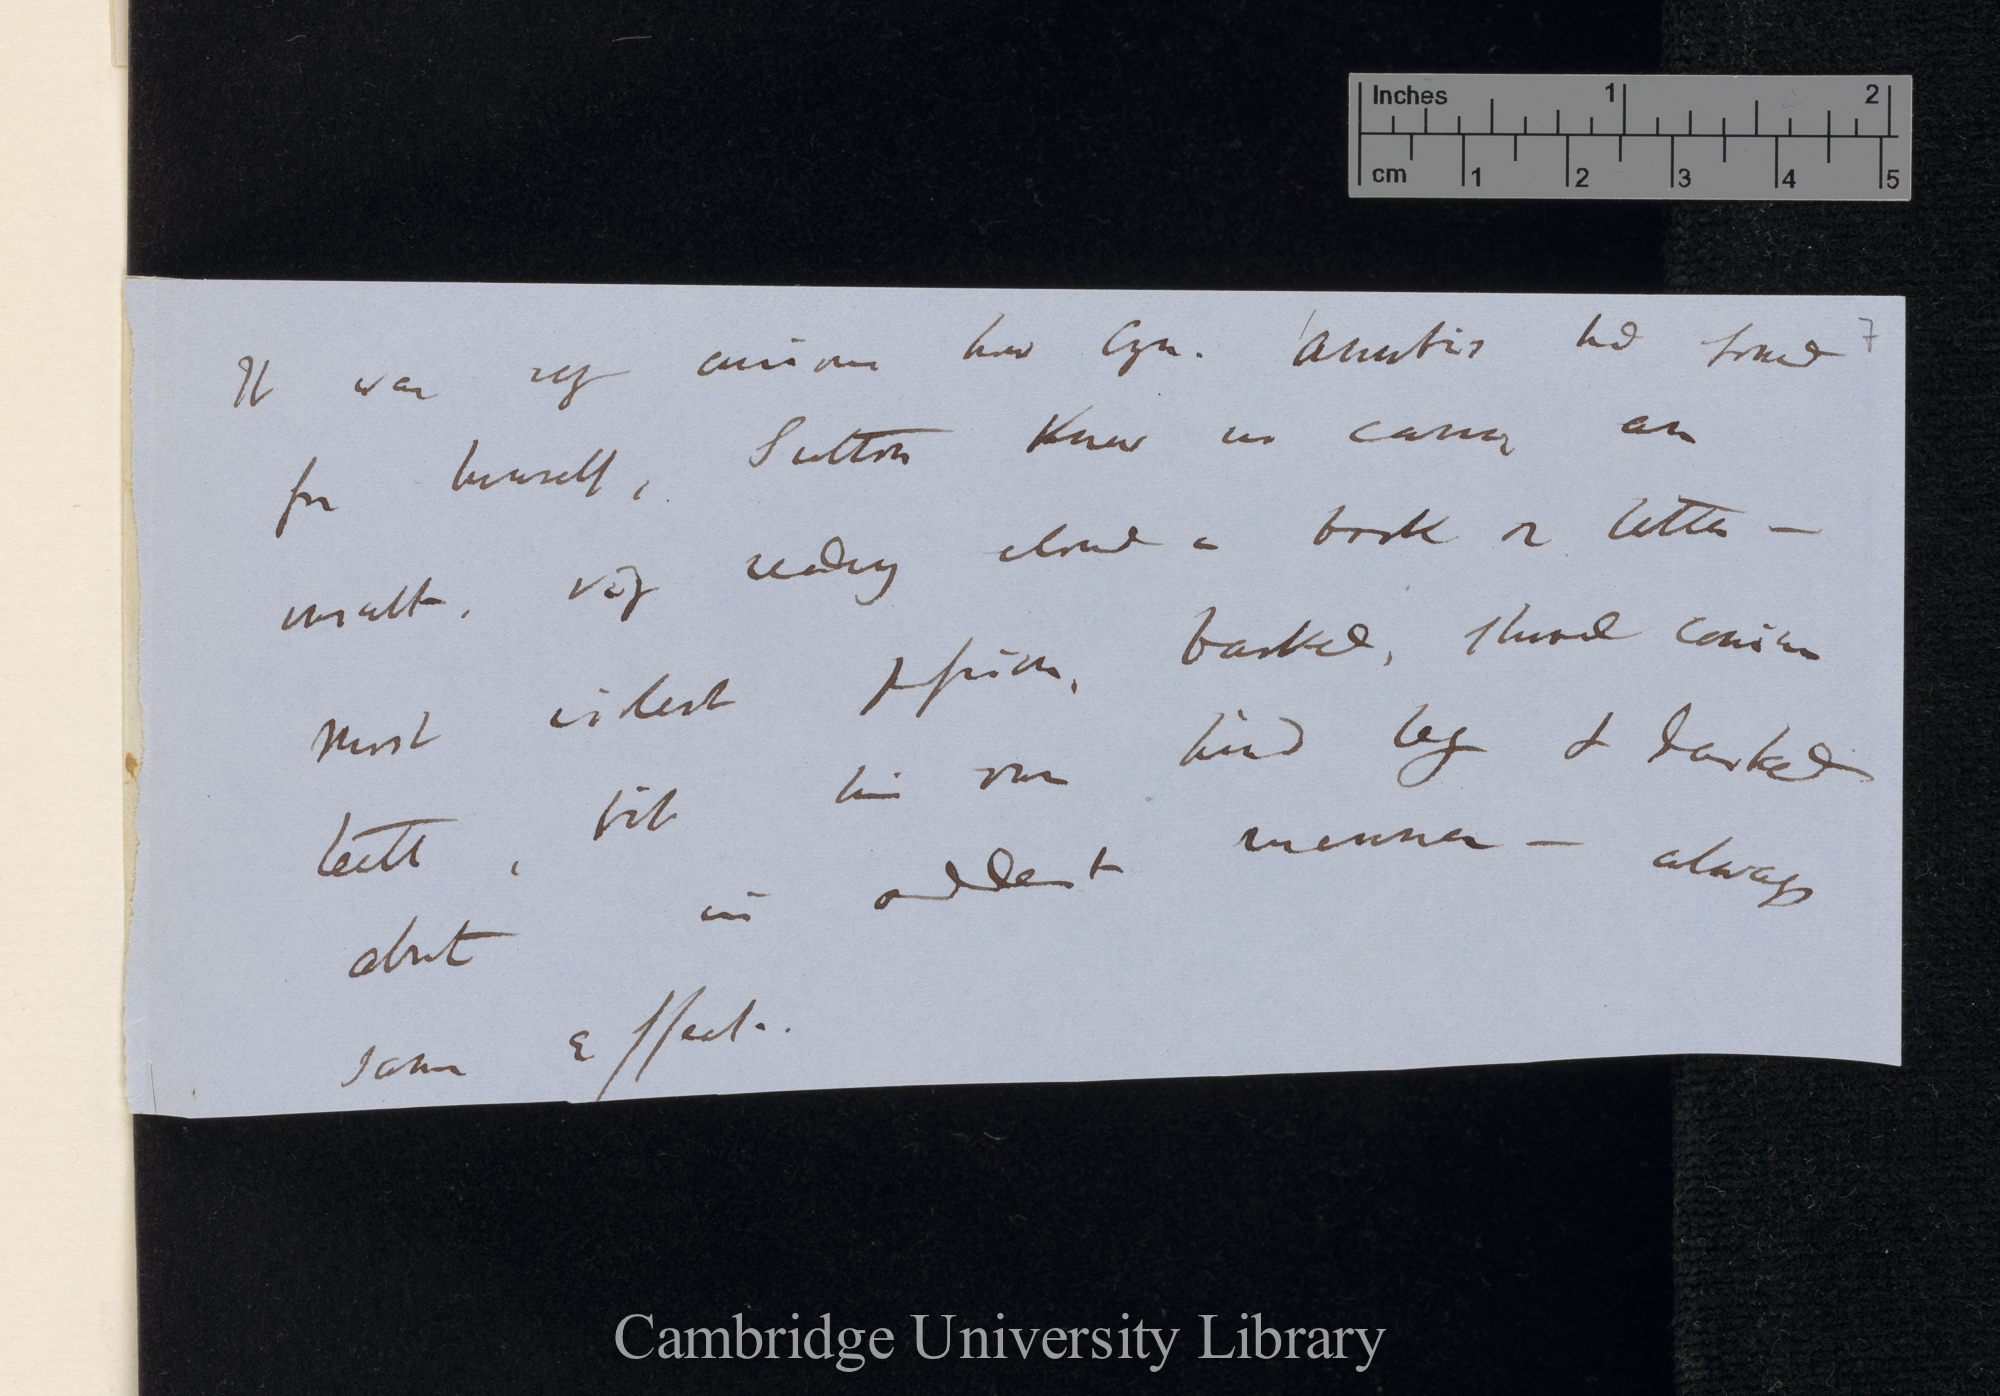 Inches 1 2
cm 1 2 3 4 5
7
It was very curious how Cyn. Anubis had found
for himself, Sutton knew no cause, an
insult, viz reading aloud a book or letter —
most violent passion, barked, showed canine
teeth, bit his own hind leg & barked
about in oddest manner — always
same effect.
Cambridge University Library